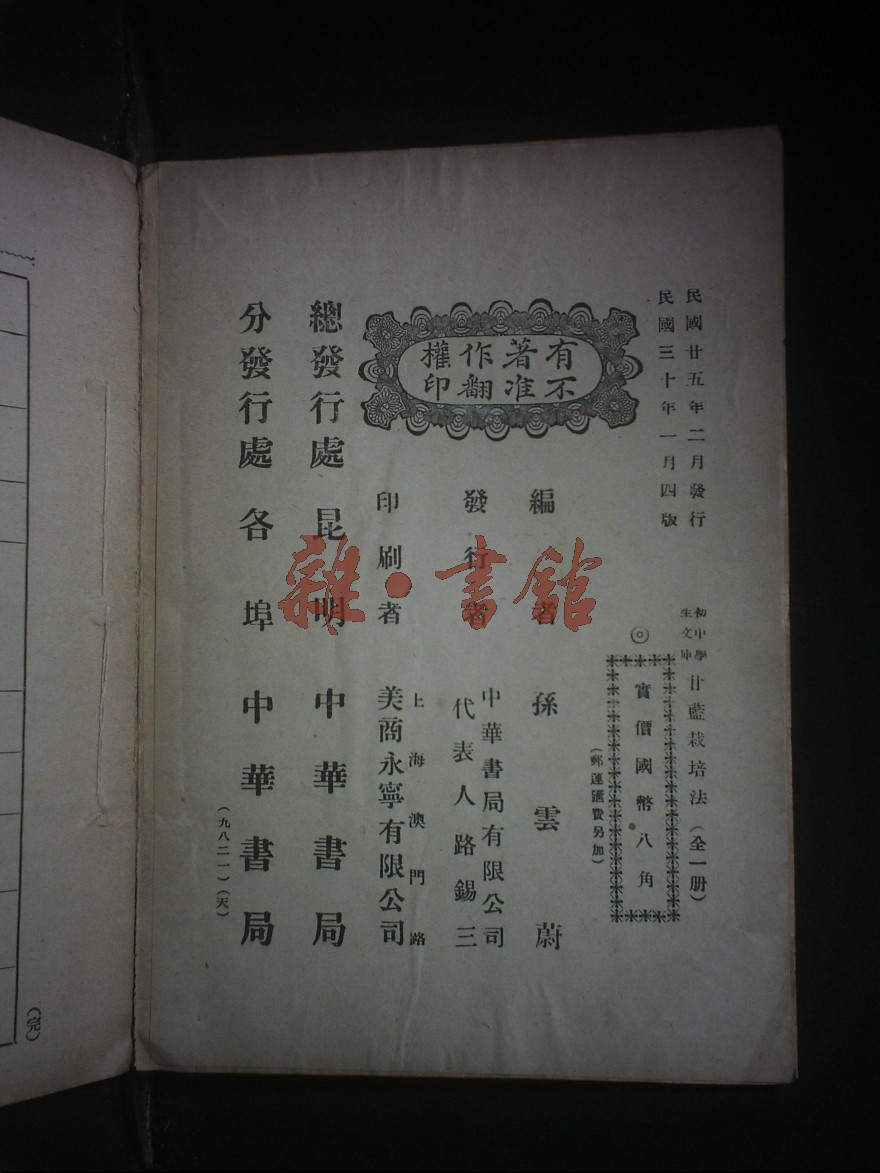 民國廿五年二月發行
民國三十年一月四版
初中學
生文庫
甘藍栽培法（全一册）
◎實價國幣八角
（郵運匯費另加）
有著作權
不准翻印
編者 孫雲蔚
發行者
中華書局有限公司
代表人路錫三
印刷者
上海澳門路
美商永寧有限公司
總發行處 昆明 中華書局
分發行處 各埠 中華書局
（九八二一）（天）
（完）
雜·書館